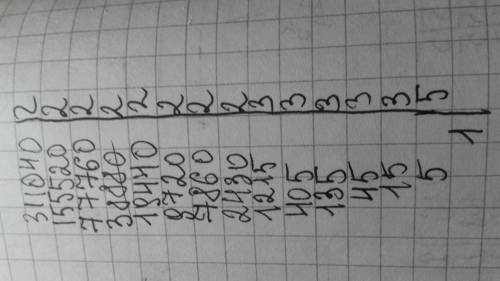 311040 | 2
155520 | 2
77760 | 2
38880 | 2
19440 | 2
9720 | 2
4860 | 2
2430 | 2
1215 | 3
405 | 3
135 | 3
45 | 3
15 | 3
5 | 5
1 |